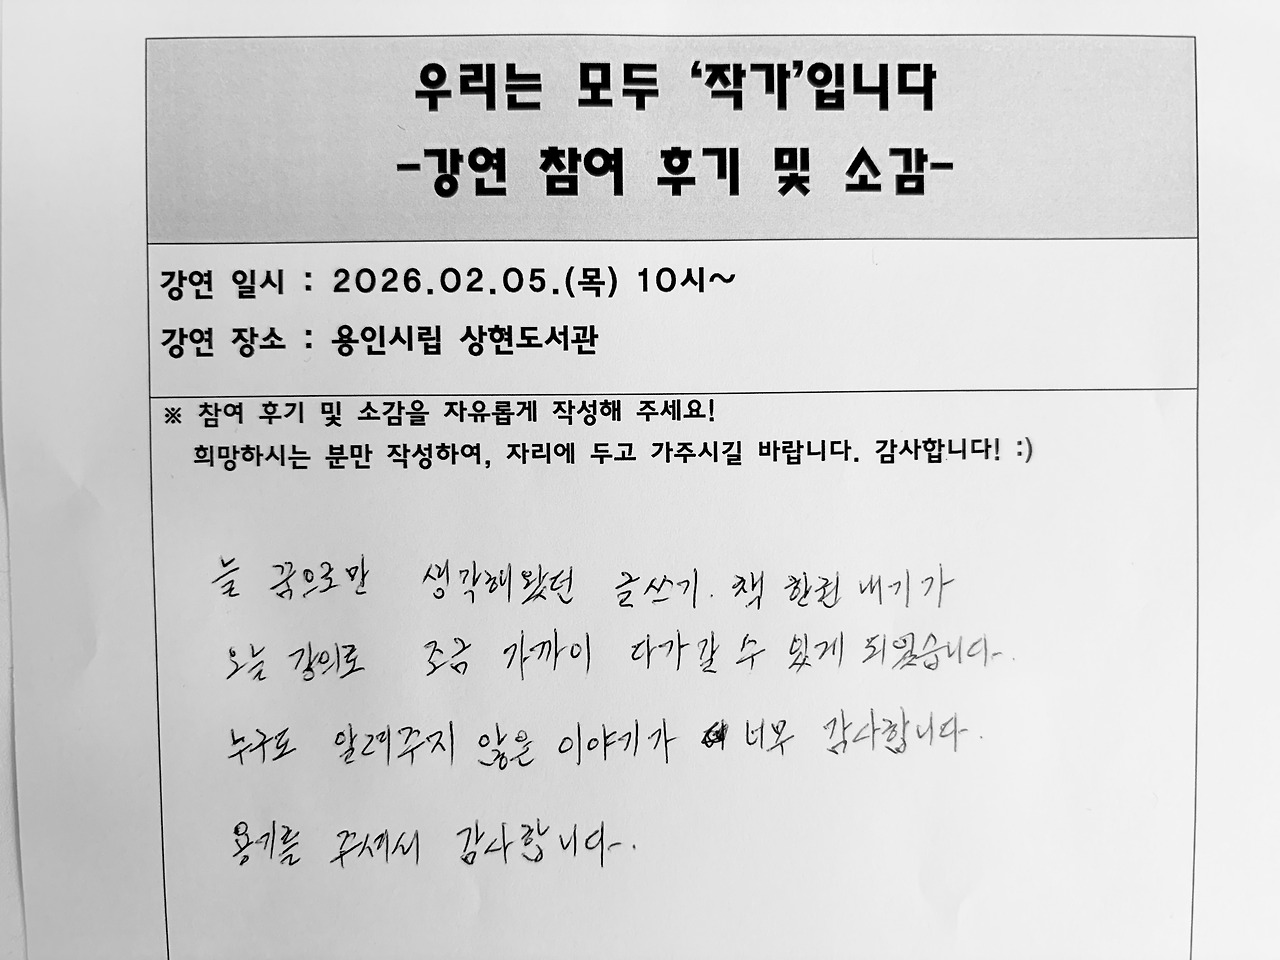 우리는 모두 ‘작가’입니다
-강연 참여 후기 및 소감-
강연 일시 : 2026.02.05.(목) 10시~
강연 장소 : 용인시립 상현도서관
※ 참여 후기 및 소감을 자유롭게 작성해 주세요!
희망하시는 분만 작성하여, 자리에 두고 가주시길 바랍니다. 감사합니다! :)
늘 꿈으로만 생각해왔던 글쓰기. 책 한권 내기가
오늘 강의로 조금 가까이 다가갈 수 있게 되었습니다.
누구도 알려주지 않은 이야기가 너무 감사합니다.
용기를 주셔서 감사합니다.